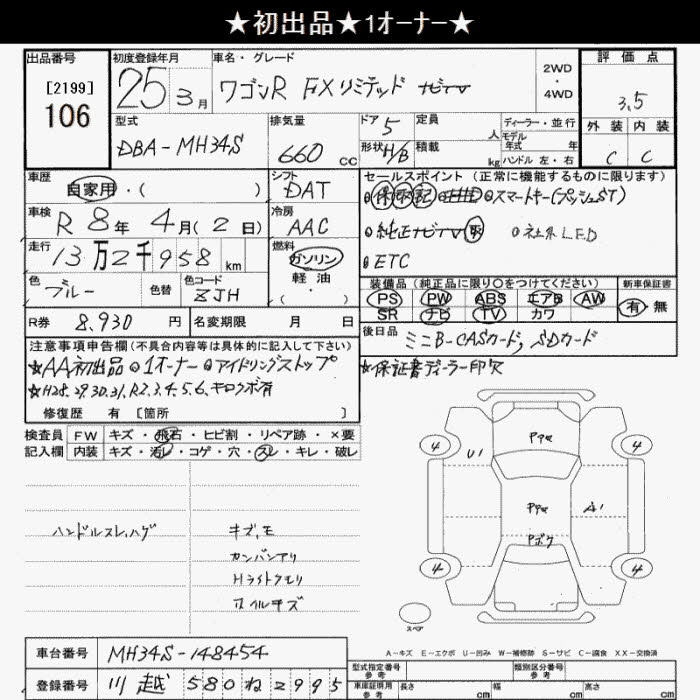 ★初出品★1オーナー★
出品番号 初度登録年月 車名・グレード 評価点
[2199]
106
25 3月 ワゴンR FXリミテッド ナビTV
2WD
・
4WD
3.5
型式 排気量 ドア 定員 ディーラー・並行 外装 内装
DBA-MH34S 660 cc 5 人 モデル年式 年
形状 H/B 積載 kg ハンドル 左・右 C C
車歴 シフト セールスポイント(正常に機能するものに限ります)
自家用・( ) DAT 保 取 記 スマートキー(プッシュST)
車検 冷房
R 8年 4月(2日) AAC 純正ナビTV 社外LED
走行 燃料
13万2千958 km ガソリン ETC
軽油
・( )
色 色替 色コード 装備品(純正品に限り○をつけてください) 新車保証書
ブルー ZJH PS PW ABS エアB AW 有・無
SR ナビ TV カワ
R券 8,930円 名変期限 月 日 後日品 ミニB-CASカード, SDカード
注意事項申告欄(不具合内容等は具体的に記入して下さい)
★AA初出品 1オーナー アイドリングストップ ★保証書ディーラー印欠
★H28.29.30.31.R2.3.4.5.6.キロクボ有
修復歴 有 [箇所 ]
検査員 FW キズ・飛石・ヒビ割・リペア跡・×要
記入欄 内装 キズ・汚レ・コゲ・穴・スレ・キレ・破レ
4 4
U1
A1
Pボケ
4 4
ハンドルスレ,ハゲ キズ,モ
カンバンアリ
Hライトクモリ
ホイルキズ
スペア
A-キズ E-エクボ U-凹み W-補修跡 S-サビ C-腐食 XX-交換済
車台番号 MH34S-148454 型式指定番号 参考 類別区分番号 参考
登録番号 川越 580 ね 2995 車庫証明用 参考 長さ cm 幅 cm 高さ cm